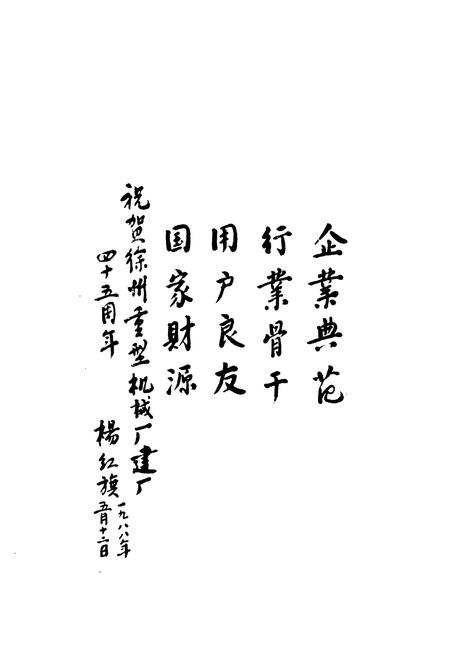 企業典范
行業骨干
用户良友
国家財源
祝贺徐州重型机械厂建厂
四十五周年
楊红旗
一九八八年
五月十二日